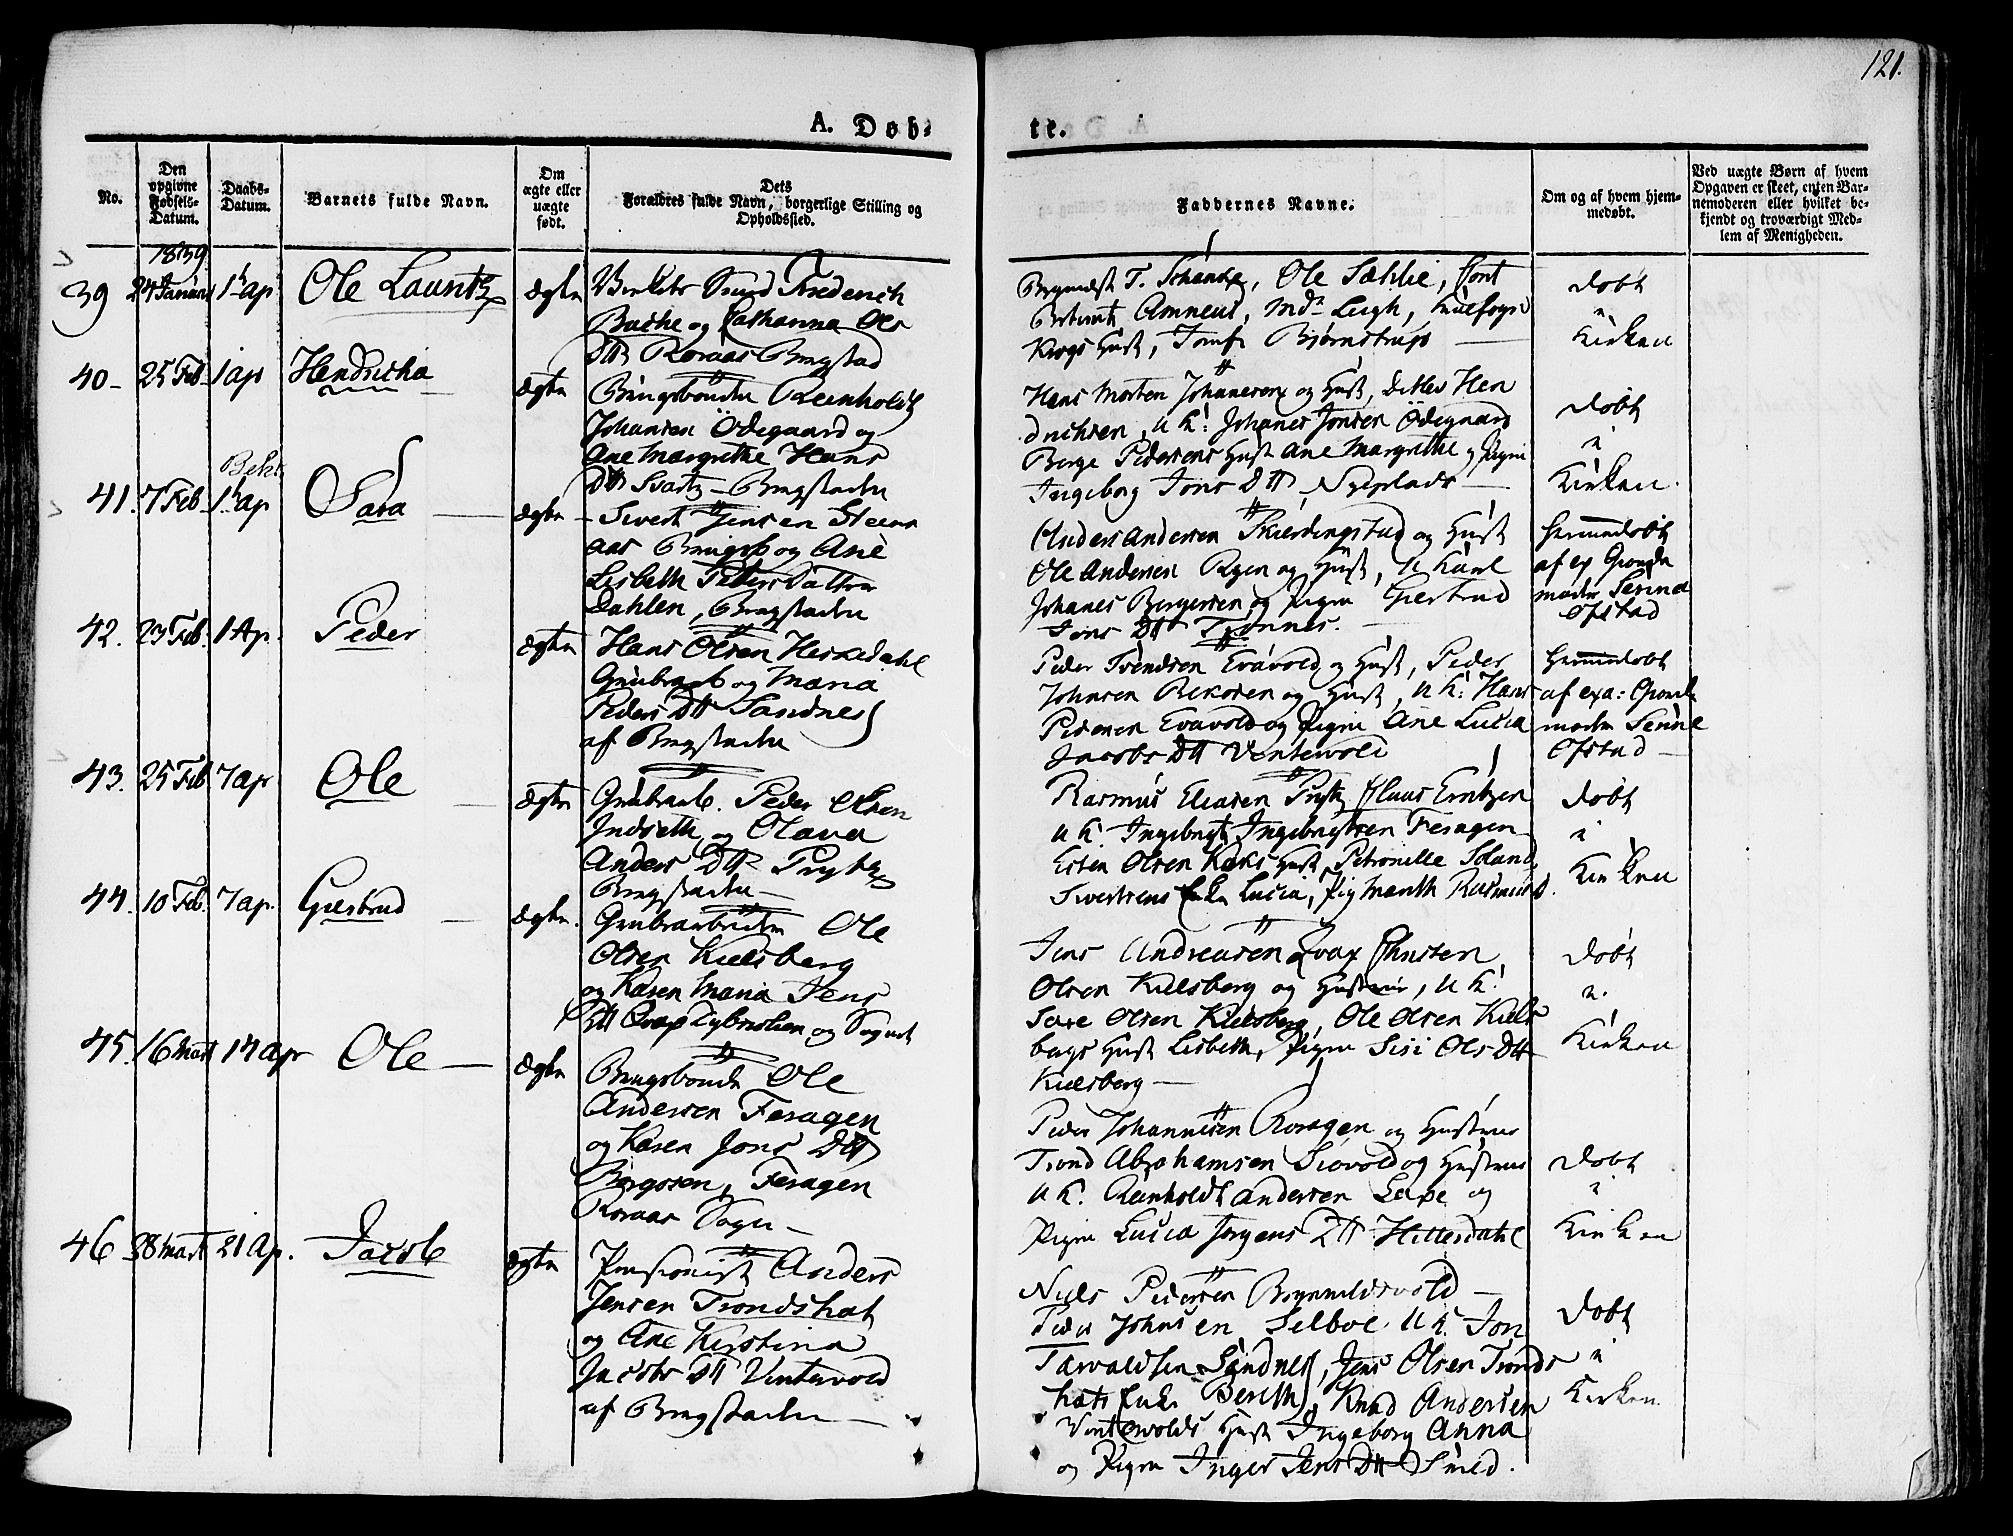 121.
A. Døb-
te.
No.
Den opgivne Fødsels-Datum.
Daabs-Datum.
Barnets fulde Navn.
Om ægte eller uægte født.
Dets Forældres fulde Navn, borgerlige Stilling og Opholdssted.
Faddernes Navne.
Om og af hvem hjem-medøbt.
Ved uægte Børn af hvem Opgaven er skeet, enten Bar-nemoderen eller hvilket be-kjendt og troværdigt Med-lem af Menigheden.
1839
39 24 Januar 1 ap Ole Launtz ægte
Frederich
Bache og Cathanna Ols
Dtt Roraas Bergstad
T. Schanche, Ole Sæhlie,
Amneus, Md Leigh,
Krogs Hust, Jomf Bjørnstrup
Døbt
i
Kirken
40 - 25 Feb 1 ap Hendricha ægte
Bergsbonden Reinholdt
Johansen Ødegaard og
Ane Margrethe Hans
Dtt - Bergstaden
Hans Morten Johannesen og Hust, Ditlev Hen
drichsen, UK: Johanes Jonsen Ødegaard
Berge Pedersens Hust Ane Margrethe og Pigen
Ingeborg Jons Dtt, Nyeplads
Døbt
i
Kirken.
41. 7 Feb Bek 1 ap Sara ægte
Sivert Jensen Steen
aas og Ane
Lisbeth Peders Datter
Dahlen, Bergstaden
Anders Andersen Skierdingstad og Hust
Ole Andersen Ryen og Hust, U Karl
Johanes Borgersen og Pigen Giertrud
Jons Dtt Tønnes.
Hjemmedøbt
af ex Gjorde
moder Serina
Ofstad
42. 23 Feb. 1 Ap. Peder ægte
Hans Olsen Hessedahl
Grubearb og Maria
Peders Dtt Sandnes
af Bergstaden
Peder Svendsen Evavold og Hust, Peder
Johnsen og Hust, UK: Hans
Pedersen Evavold og Pigen Ane Lucia
Jacobs Dtt Vintervold
Hjemmedøbt
af exa: Gjorde
moder Serine
Ofstad -
43. 25 Feb 7 ap Ole ægte
Grubearb. Peder Olsen
Indseth og Olava
Anders Dtt Prytz
Bergstaden -
Rasmus Eliasen Prytz, Claus Erntzen
UK. Ingebrigt Ingebrigtsen Feragen
Esten Olsen Kæks Hust, Petronille
Sivertsens Enke Lucia, Pig Marith Rasmusd.
Døbt
i
Kirken
44. 10 Feb. 7 ap. Giertrud ægte.
Grubearbeider Ole
Olsen Kielsberg
og Karen Maria Jens
Dtt og Sognet
Jens Andreasen Christen
Olsen Kielsberg og Hustrue, UK:
Olsen Kielsberg, Ole Olsen Kiels
bergs Hust Lisbeth, Pigen Sisi Ols Dtt
Kielsberg -
Døbt
i.
Kirken
45. 16 Mart 14 ap Ole ægte
Bergsbonde Ole
Andersen Feragen
og Karen Jons Dtt
Borgosen, Feragen
Roraas Sogn -
Peder Johannesen Roragen og Hustrue
Trond Abrahamsen Siovold og Hustrue
UK. Reinholdt Andersen og
Pigen Lucia Jorgens Dtt Hittesdahl
Døbt
i
Kirken
46 28 Mart 21 Ap. Jacob ægte
Pensionist Anders
Jensen Trondshat
og Ane Kirstina
Jacobs Dtt Vintervold
af Bergstaden -
Niels Pedersen Brynnildsvold -
Peder Johnsen Selboe. UK. Jon
Tarvaldsen Sandnes, Jens Olsen Tronds
hats Enke Bereth, Knud Andersen
Vintervolds Hust Ingeborg Anna
og Pigen Inger Jens Dtt Smed.
Døbt
i
Kirken.